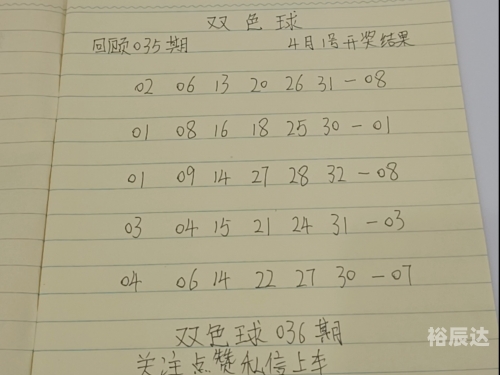 双色球
回顾035期 4月1号开奖结果
02 06 13 20 26 31-08
01 08 16 18 25 30-01
01 09 14 27 28 32-08
03 04 15 21 24 31-03
04 06 14 22 27 30-07
双色球036期
关注点赞私信上车
裕辰达